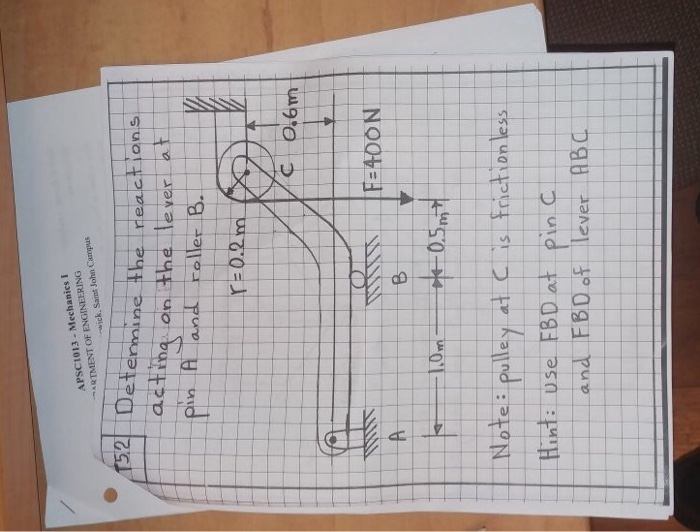 APSC1013 - Mechanics I
ARTMENT OF ENGINEERING
wick, Saint John Campus
T5.2 Determine the reactions
acting on the lever at
pin A and roller B.
r=0.2m
C
0.6m
F=400N
A
B
1.0m
0.5m
Note: pulley at C is frictionless
Hint: use FBD at pin C
and FBD of lever ABC